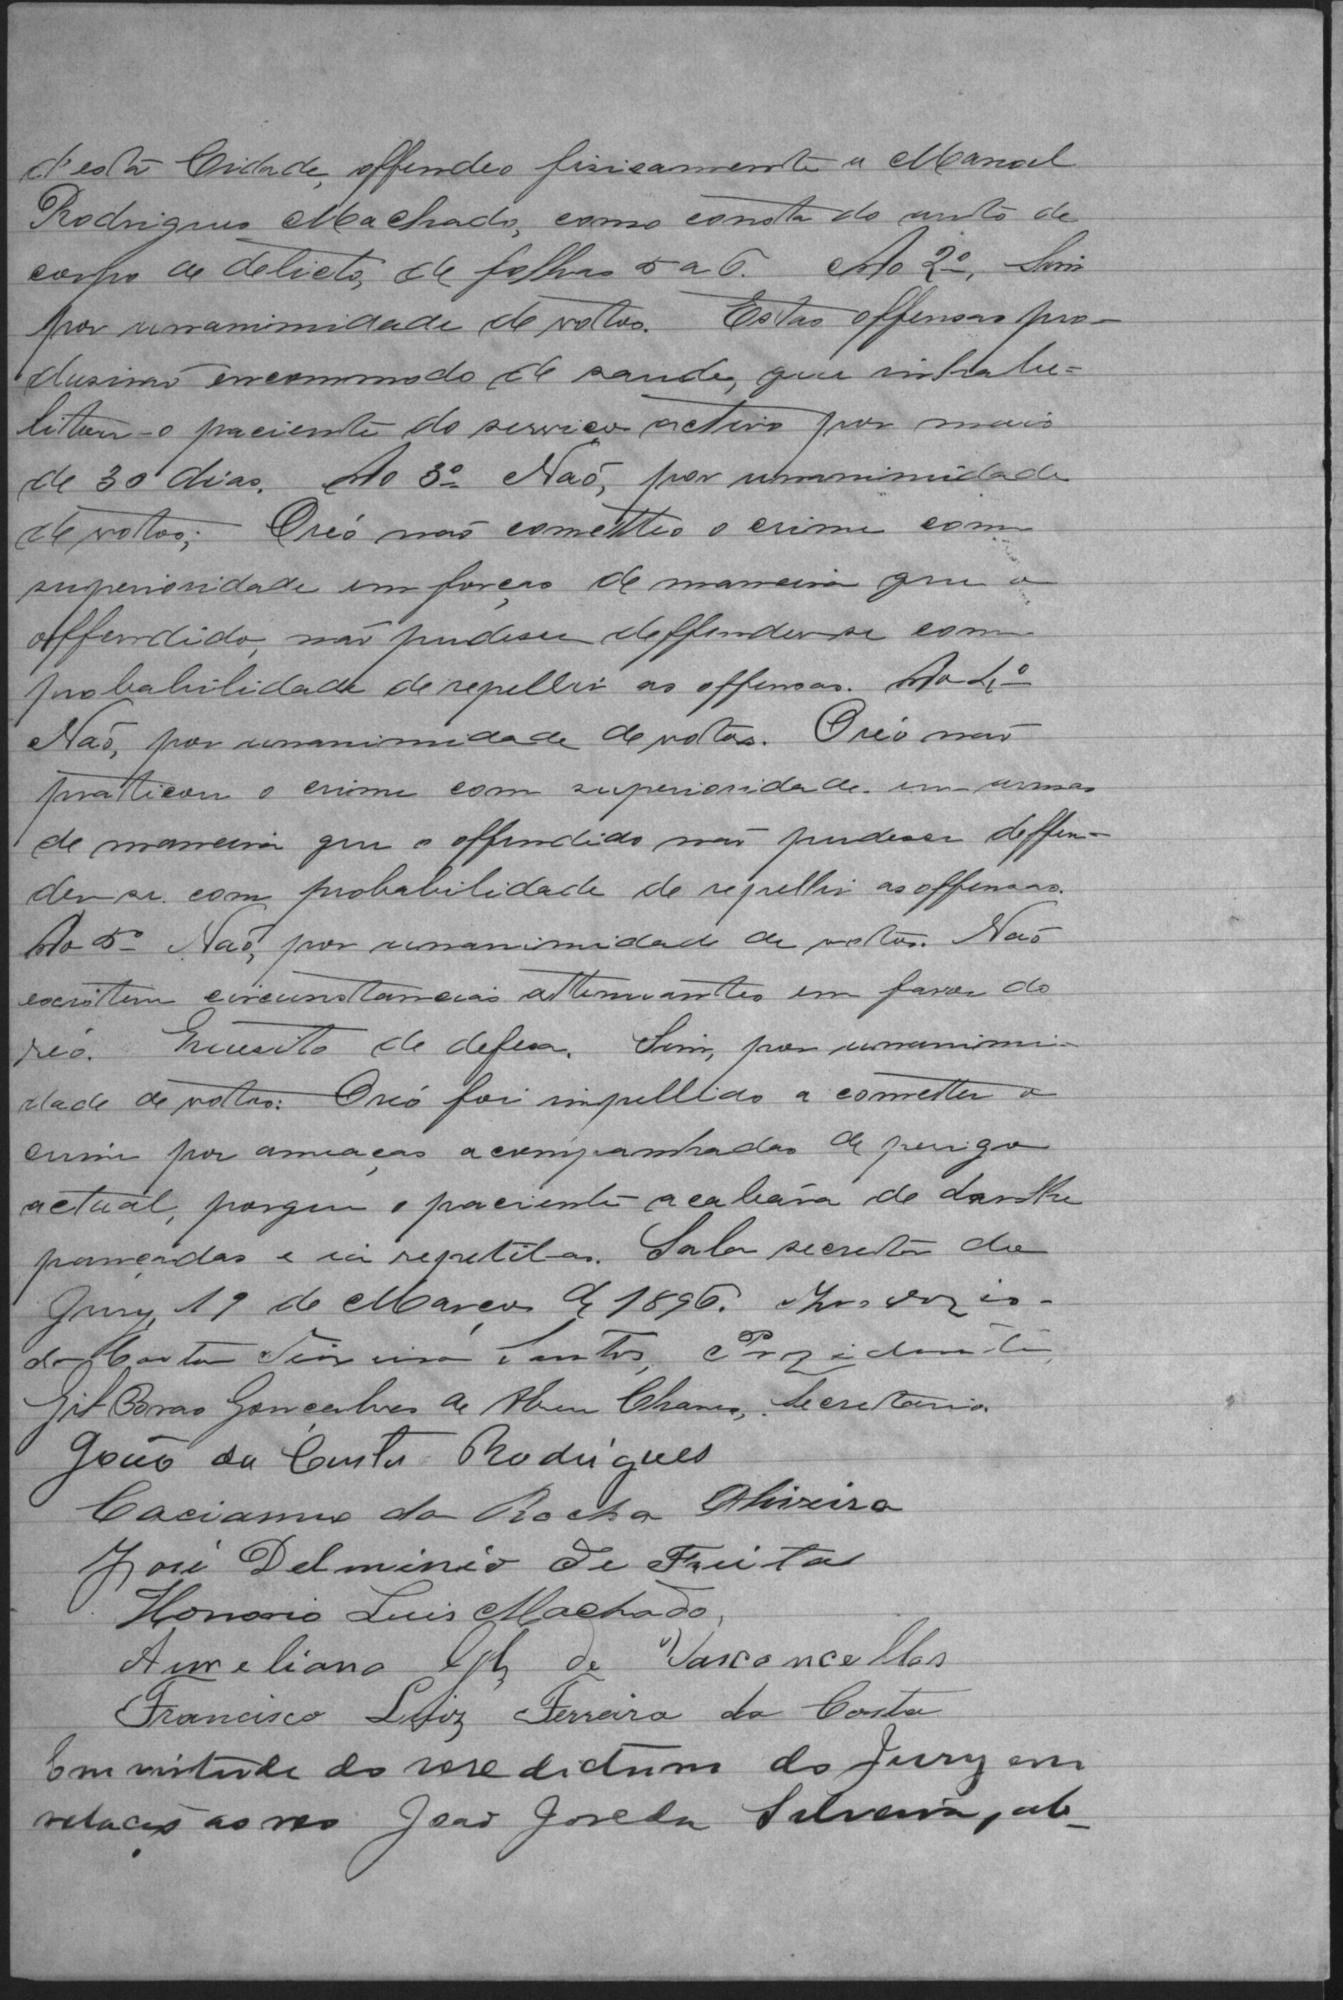 d'esta Cidade, offendeo fisicamente a Manoel
Rodrigues Machado, como consta do auto de
corpo de delicto, de folhas 5 a 6. Ao 2º, Sim
por unanimidade de votos. Estas offensas pro-
dusirão encommodo de saude, que inhabe-
litou-o paciente do serviço activo por mais
de 30 dias. Ao 3º Não, por unanimidade
de votos; O reó não cometteo o crime com
superioridade em forças de maneira que o
offendido, não pudesse deffender-se com
probabilidade de repellir as offensas. Ao 4º
Não, por unanimidade de votos. O reó não
praticou o crime com superioridade em armas
de maneira que o offendido não pudesse deffen-
der-se com probabilidade de repellir as offensas.
Ao 5º Não, por unanimidade de votos. Não
existem circunstancias attenuantes em favor do
reó. Quesito de defesa. Sim, por unanimi-
dade de votos: O reó foi impellido a cometter o
crime por ameaças acompanhadas de perigo
actual, porque o paciente acabára de dar-lhe
pancadas e ia repetil-as. Sala secreta do
Jury, 19 de Março de 1896.
da Costa Santos, Prezidente,
Gil Gonçalves de Abreu Chaves, Secretario.
João da Costa Rodrigues
Caciano da Rocha Oliveira
José Delminio de Freitas
Honorio Luis Machado,
Aureliano de Vasconcellos
Francisco Luiz Ferreira da Costa
Em virtude do veredictum do Jury em
relação ao reo João José da Silveira, ab-